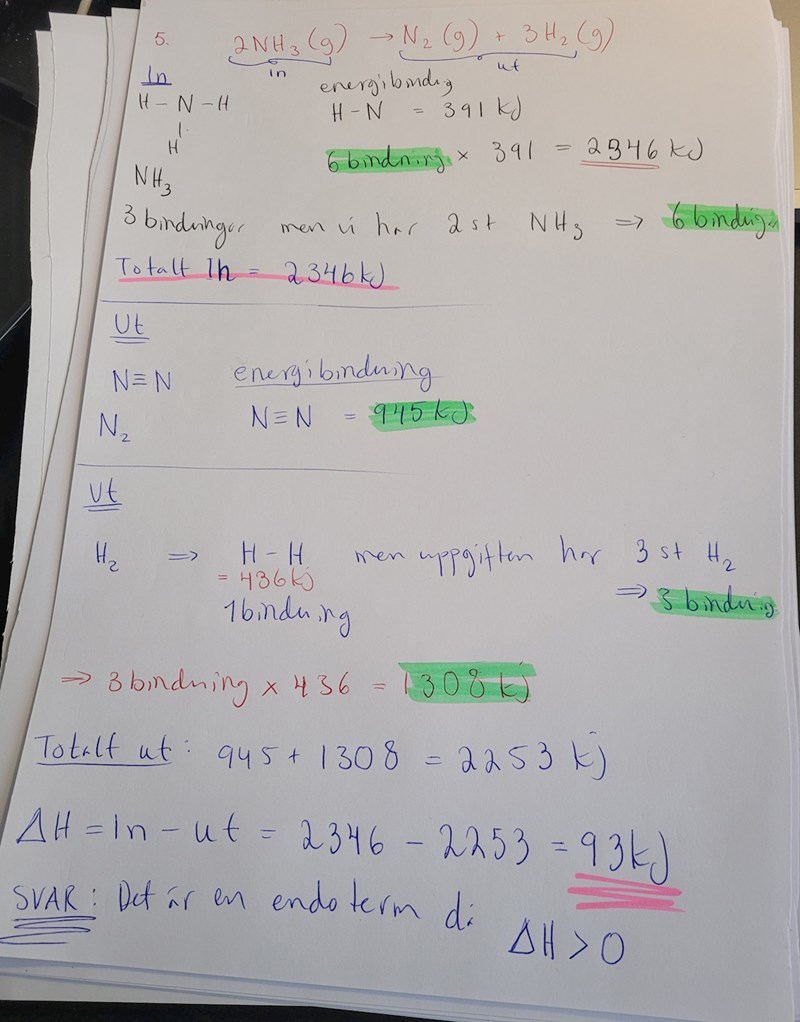 5. 2NH₃(g) → N₂(g) + 3H₂(g)
in ut
In energibinding
H-N-H H-N = 391 kJ
H
6 bindning × 391 = 2346 kJ
NH₃
3 bindningar men vi har 2 st NH₃ => 6 bindnigar
Totalt In = 2346 kJ
Ut
N≡N energibindning
N₂ N≡N = 945 kJ
Ut
H₂ => H-H men uppgiften har 3 st H₂
= 436 kj => 3 bindning
1 bindning
=> 3 bindning × 436 = 1308 kj
Totalt ut: 945 + 1308 = 2253 kj
ΔH = In - ut = 2346 - 2253 = 93 kJ
SVAR: Det är en endoterm då ΔH > 0